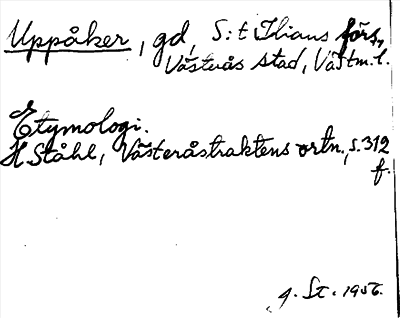 Uppåker, gd, S:t Ilians förs.,
Västerås stad, Västm. l.
Etymologi.
H Ståhl, Västeråstraktens ortn., s. 312
f.
St. 1956.